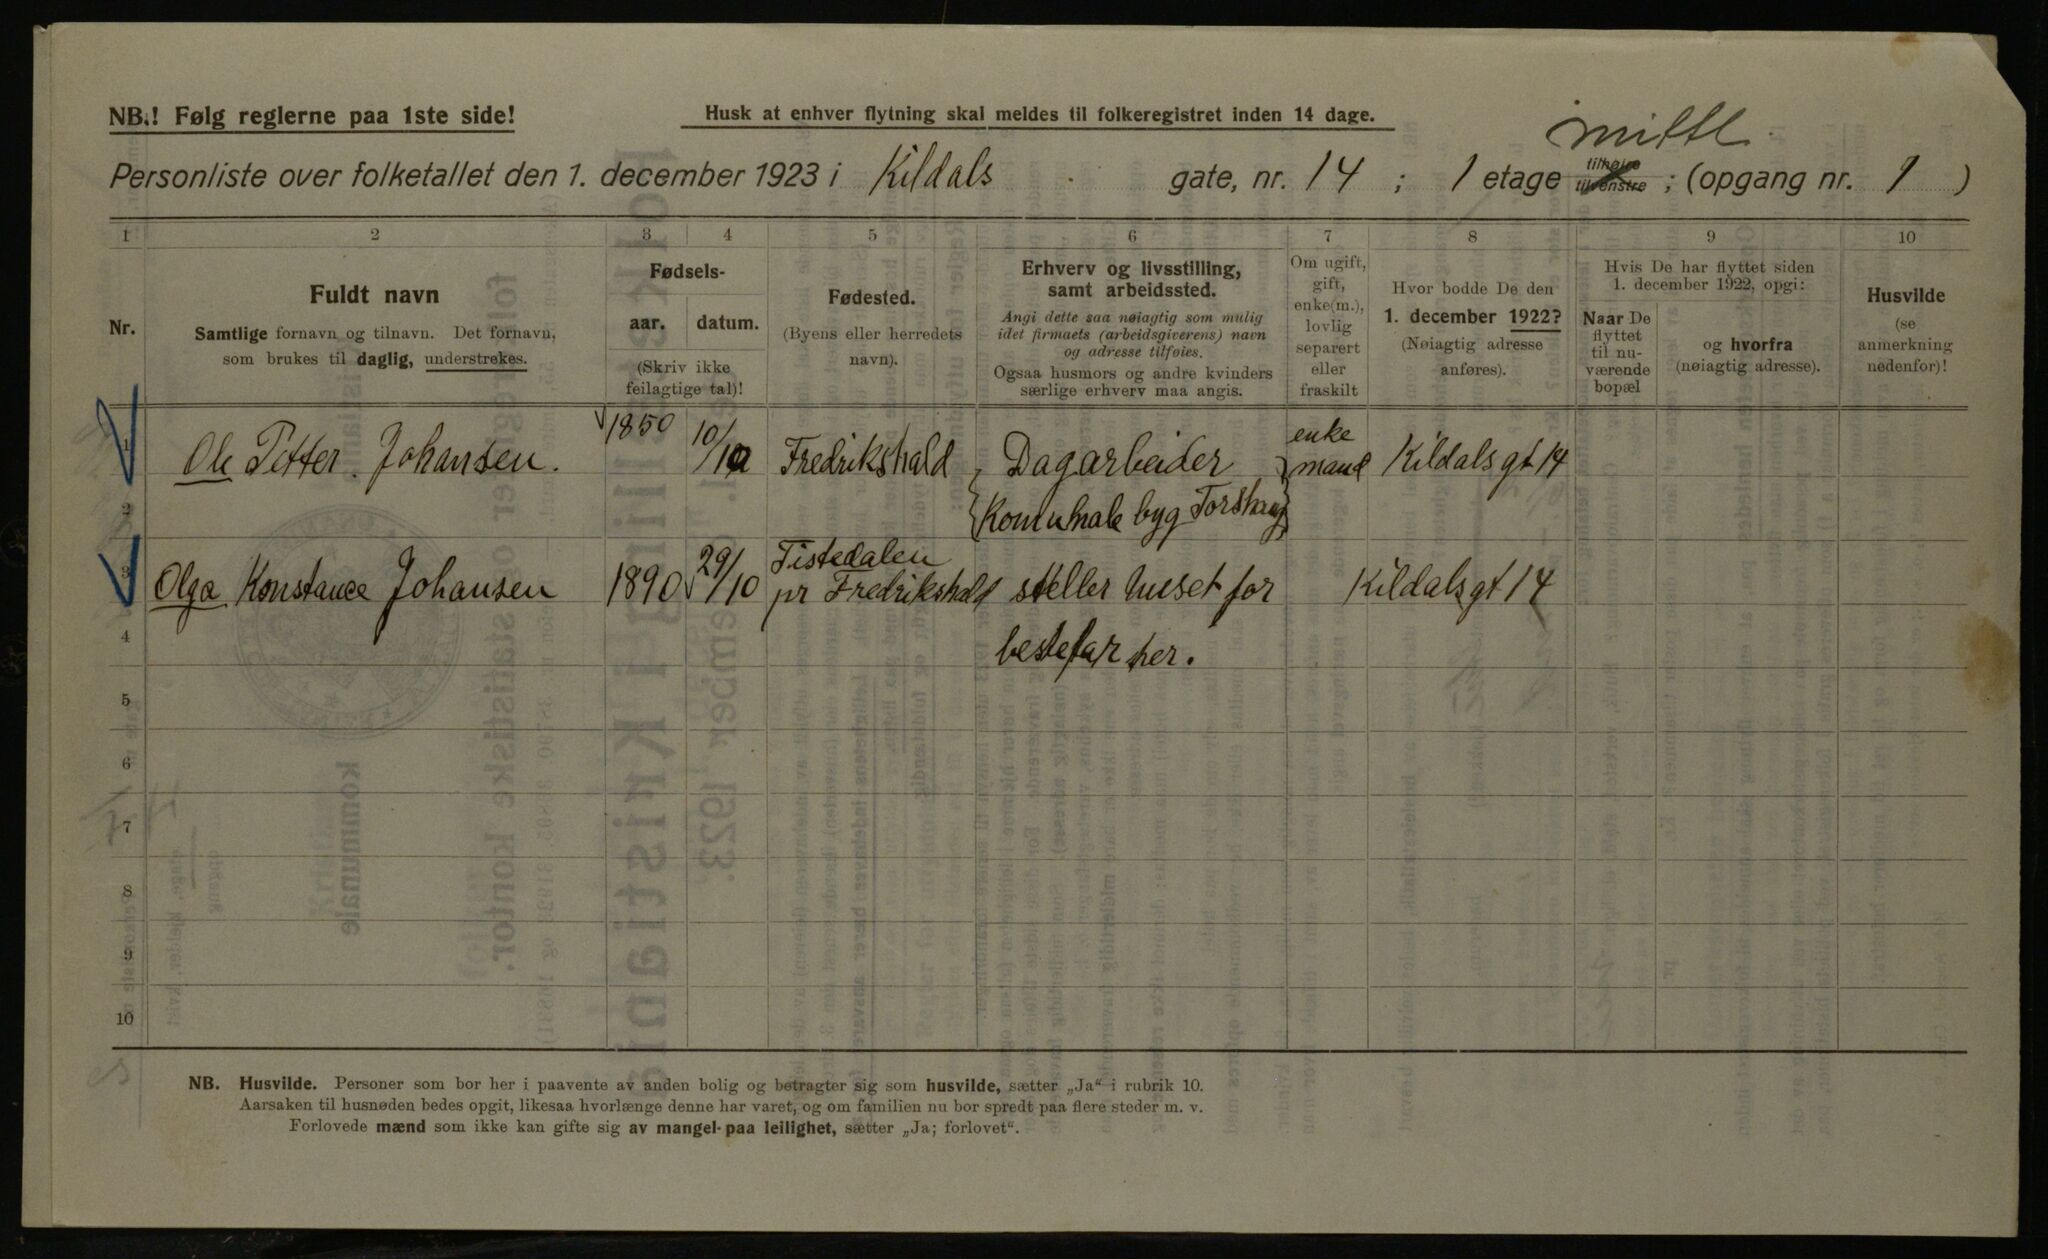 NB.! Følg reglerne paa 1ste side!
Husk at enhver flytning skal meldes til folkeregistret inden 14 dage.
mitte
Personliste over folketallet den 1. december 1923 i Kildals gate, nr. 14 ; 1 etage tilhøire tilvenstre ; (opgang nr. 1 )
1 2 3 4 5 6 7 8 9 10
Nr.
Fuldt navn
Samtlige fornavn og tilnavn. Det fornavn,
som brukes til daglig, understrekes.
Fødsels-
aar. datum.
(Skriv ikke
feilagtige tal)!
Fødested.
(Byens eller herredets
navn).
Erhverv og livsstilling,
samt arbeidssted.
Angi dette saa nøiagtig som mulig
idet firmaets (arbeidsgiverens) navn
og adresse tilføies.
Ogsaa husmors og andre kvinders
særlige erhverv maa angis.
Om ugift,
gift,
enke(m.),
lovlig
separert
eller
fraskilt
Hvor bodde De den
1. december 1922?
(Nøiagtig adresse
anføres).
Hvis De har flyttet siden
1. december 1922, opgi:
Naar De
flyttet
til nu-
værende
bopæl
og hvorfra
(nøiagtig adresse).
Husvilde
(se
anmerkning
nedenfor)!
1 Ole Petter Johansen. 1850 10/10 Fredrikshald Dagarbeider enke mand Kildals gt 14
2 Komunale byg
3 Olga Konstance Johansen 1890 29/10 Tistedalen pr Fredrikshald steller huset for Kildals gt 14
4 bestefar her.
5
6
7
8
9
10
NB. Husvilde. Personer som bor her i paavente av anden bolig og betragter sig som husvilde, sætter „Ja“ i rubrik 10.
Aarsaken til husnøden bedes opgit, likesaa hvorlænge denne har varet, og om familien nu bor spredt paa flere steder m. v.
Forlovede mænd som ikke kan gifte sig av mangel paa leilighet, sætter „Ja; forlovet“.